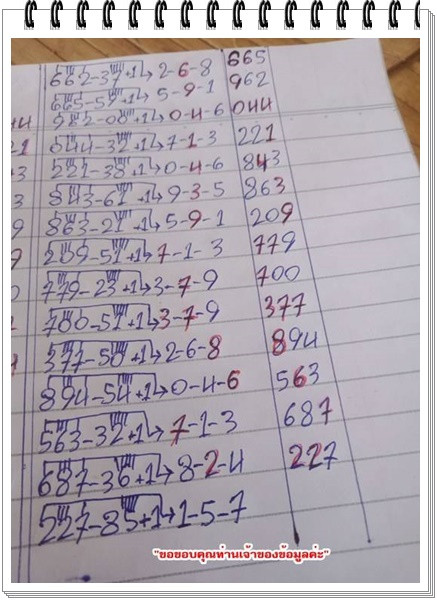 662-37+1→2-6-8 665
665-59+1→5-9-1 962
962-08+1→0-4-6 044
044-32+1→7-1-3 221
221-38+1→0-4-6 843
843-61+1→9-3-5 863
863-21+1→5-9-1 209
209-51+1→7-1-3 779
779-23+1→3-7-9 700
700-51+1→3-7-9 377
377-50+1→2-6-8 894
894-54+1→0-4-6 563
563-32+1→7-1-3 687
687-36+1→8-2-4 227
227-85+1→1-5-7
"ขอขอบคุณท่านเจ้าของข้อมูลค่ะ"